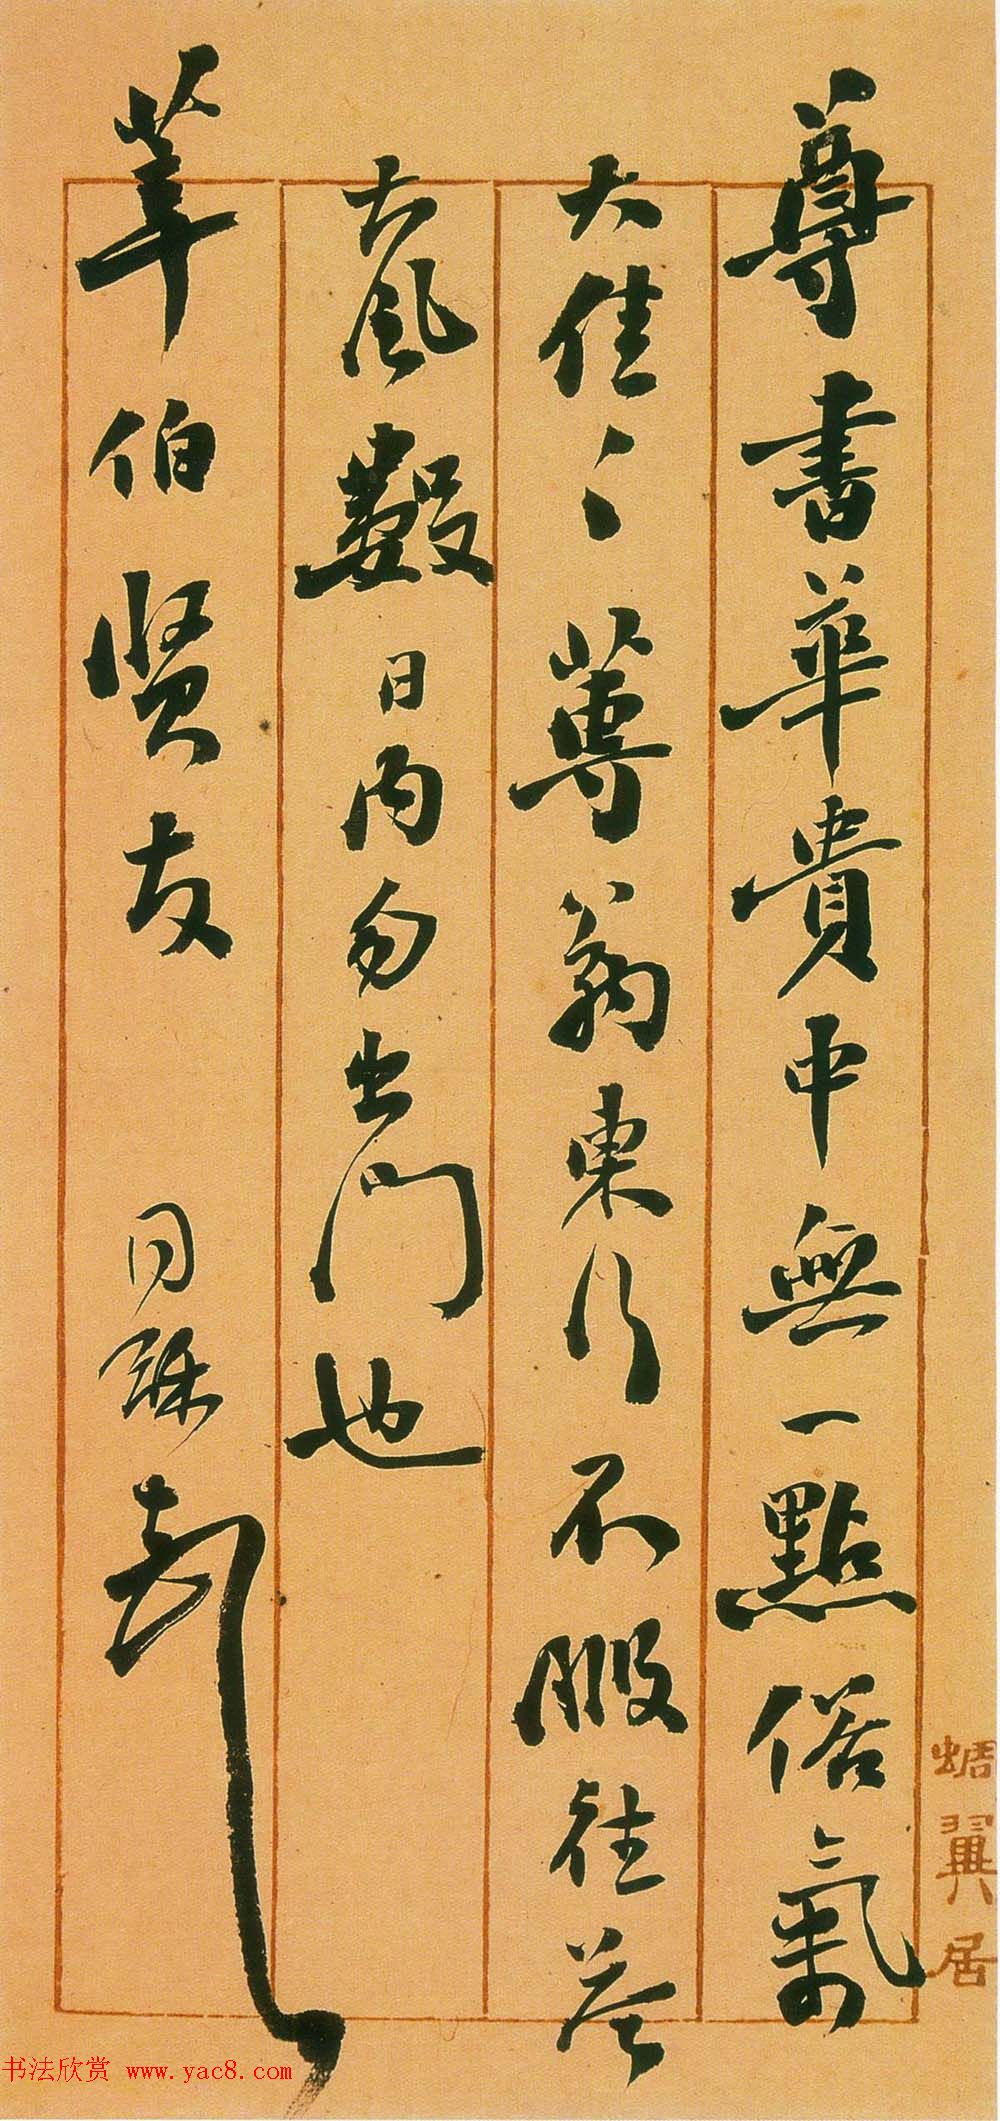 尊書華貴中無一點俗氣
大佳〻蓴翁東行不暇往荅
大風數日內勿出門也
莘伯賢友 同龢
蜩翼居
书法欣赏 www.yac8.com